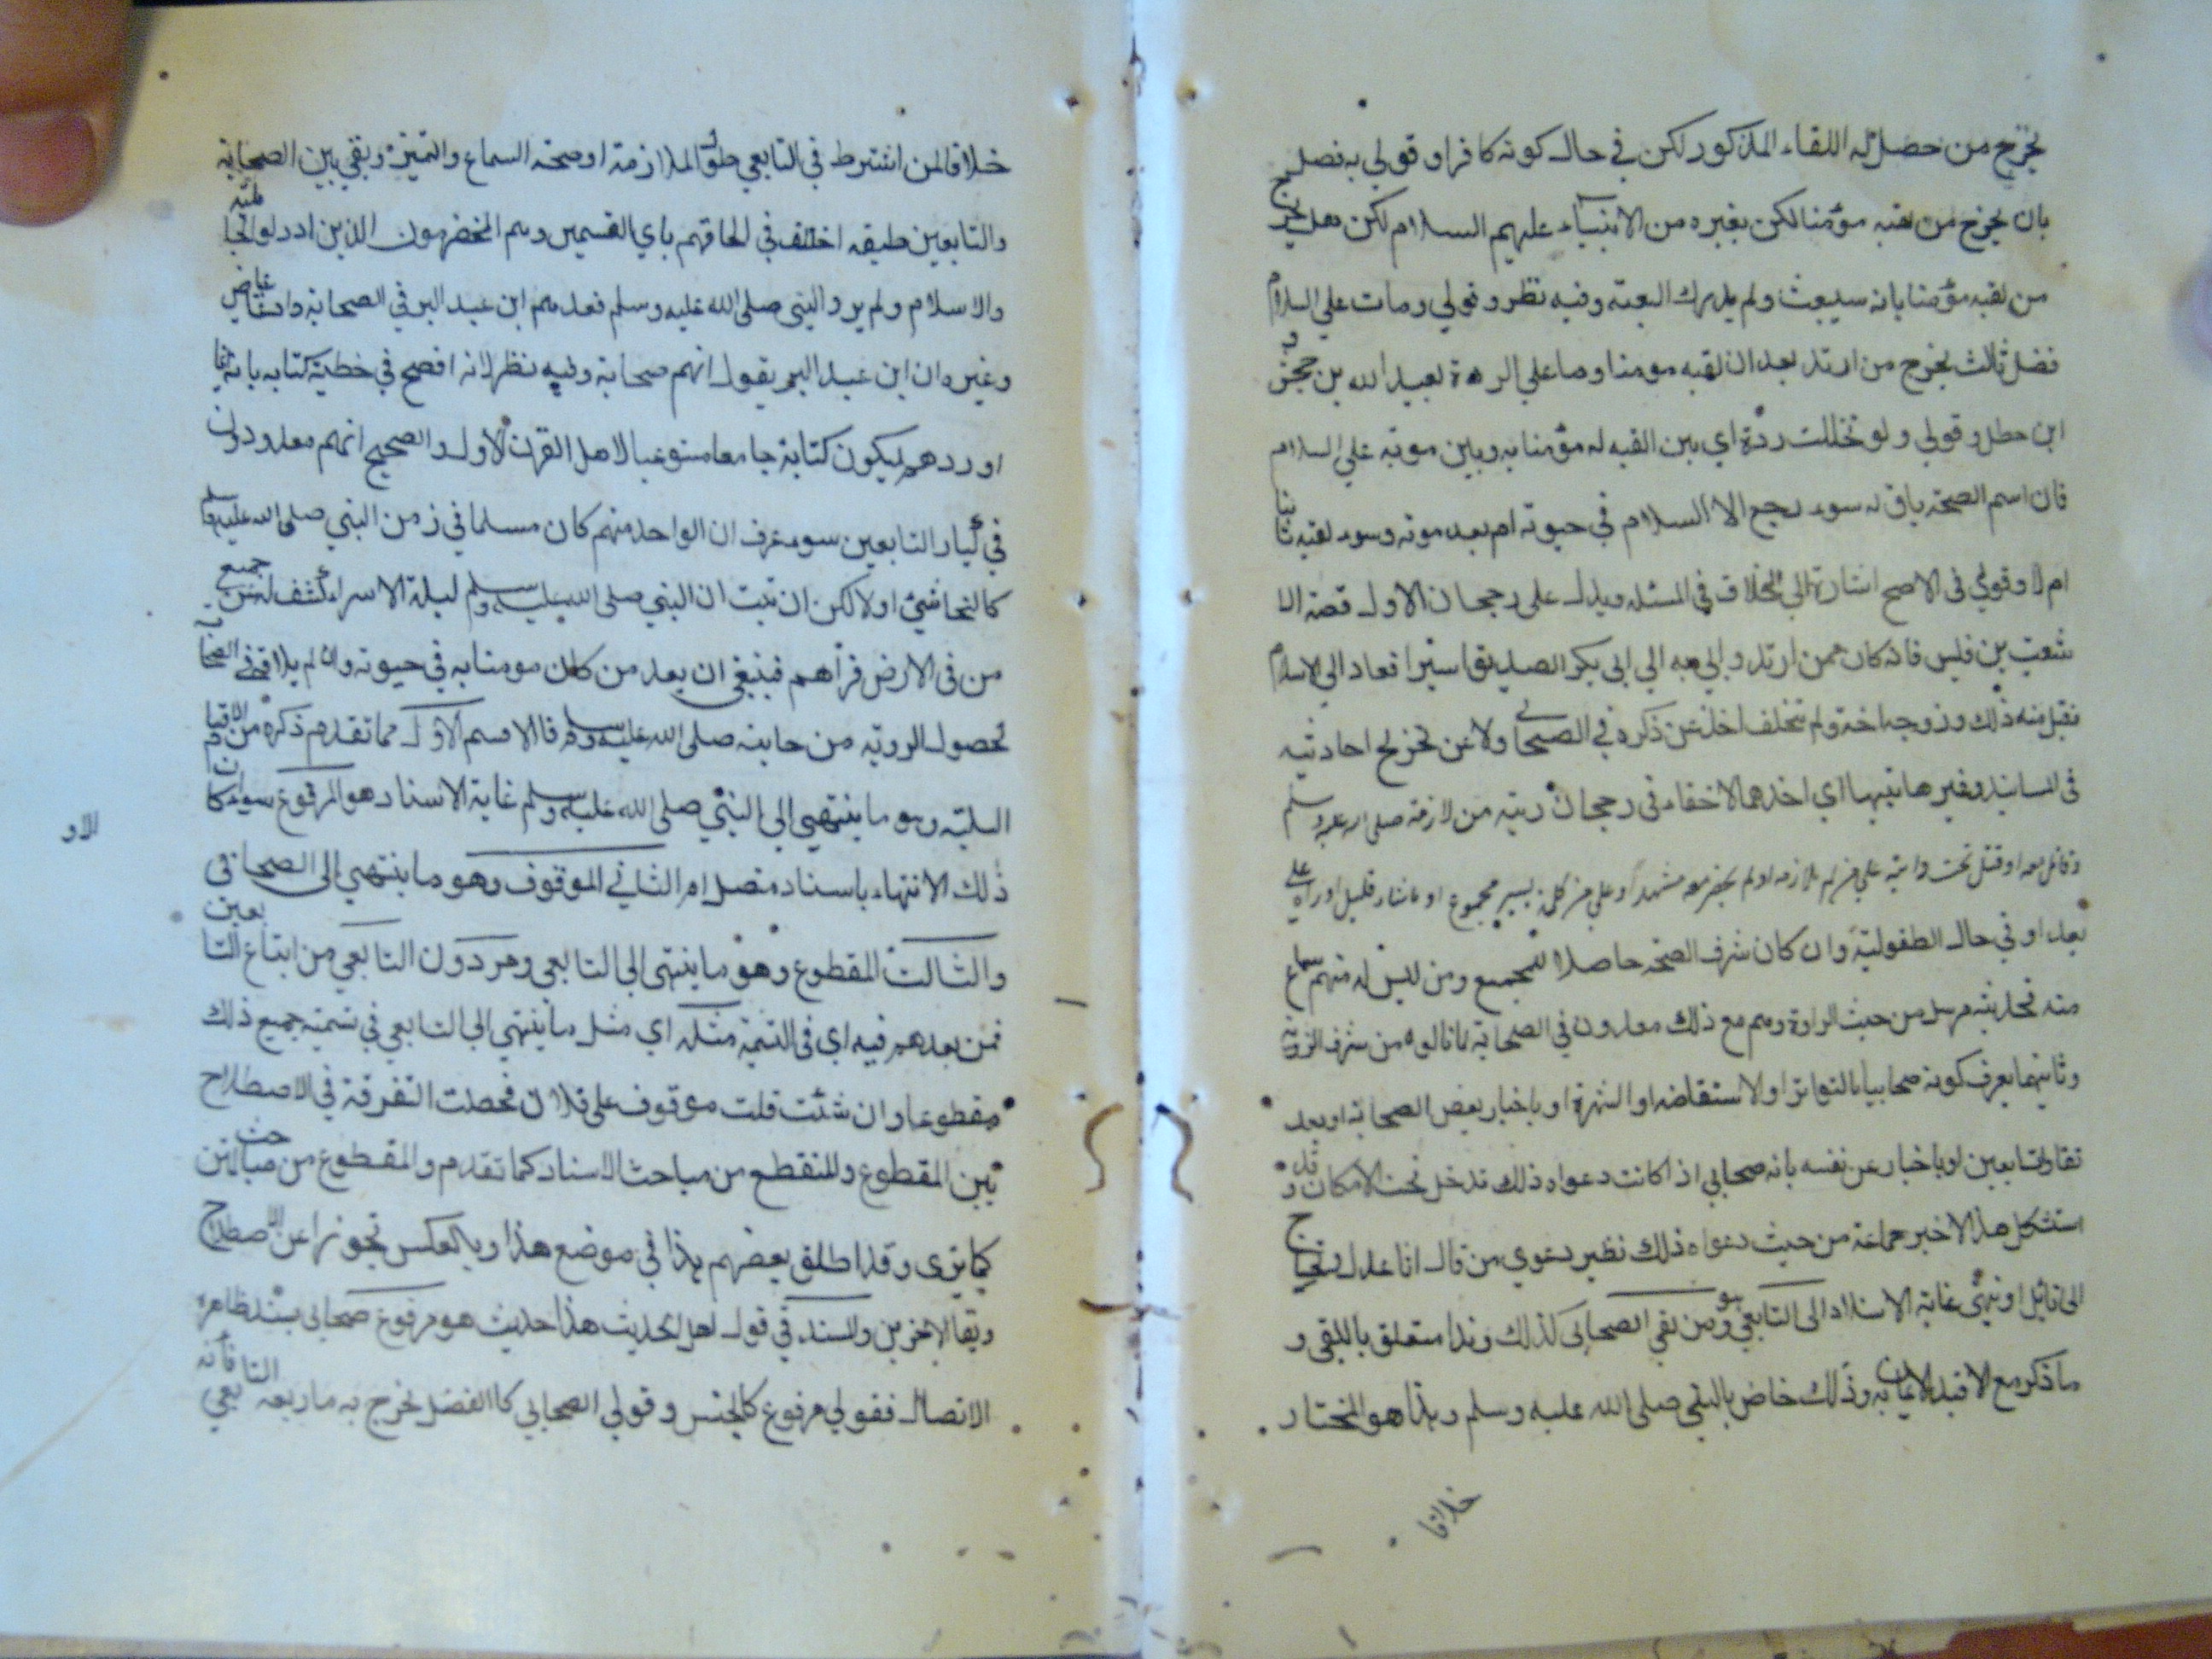 يخرج من حضل له اللقاء المذكور لكن في حال كونه كافرا وقولي به فصل
بان يخرج من لقيه مؤمنا لكن بغيره من الانبياء عليهم السلام لكن هل يخرج
من لقيه مؤمنا بانه سيبعث ولم يدرك البعثه وفيه نظر وقولي ومات علي السلام
فضل ثالث يخرج من ارتد بعد ان لقيه مومنا وما علي الردة لعبيد الله بن جحش و
ابن خطل وقولي ولو تخللت ردة اي بين القيه له مؤمنا به وبين موته علي السلام
فان اسم الصحة باق له سوء رجع الا السلام في حيوته ام بعد موته وسوء لقيه ثانيا
ام لا وقولي في الاصح اشارة الي الخلاف في المسئله ويدل على رجحان الاول قصه الا
شعت بن قليس فانه كان ممن ارتد والي به الي ابي بكر الصديق اسيرا فعاد الي الاسلام
فقبل منه ذلك وزوجه اخته ولم يتخلف احد عن ذكره في الصحا ولا عن تخريج احاديثه
في المسانيد وغيرها تنبيها اي احدهما لاخفاء في رجحان رتبه من لازمه صلى الله عليه وسلم
وقاتل معه او قتل تحت رايته علي من لم يلازمه او لم يحضر معه مشهدا وعلي من كلمه يسير او ماشاه قليل او راه علي
بعد او في حال الطفوليه وان كان شرف الصحه حاصلا للجميع ومن ليس له منهم سماع
منه فحديثه مرسل من حيث الراوة وهم مع ذلك معدون في الصحابة لما نالوه من شرف الروية
وثانيهما يعرف كونه صحابيا بالتواتر او الاستقاضه او الشهرة او باخبار بعض الصحابة او بعد
ثقاه التابعين او باخباره عن نفسه بانه صحابي اذا كانت دعواه ذلك تدخل تحت الامكان وقد
استشكل هذا الاخير جماعة من حيث دعواه ذلك نظير دعوي من قال انا عدل ويحتاج
الي تامل او ينتهي غاية الاسناد الى التابعي وهو من لقي الصحابي كذلك وهذا متعلق باللقي و
ما ذكر مع الا قيد الايمان به وذلك خاض بالنبي صلى الله عليه وسلم وهذا هو المختار
خلافا
خلافا لمن اشترط في التابعي طول الملازمة او صحه السماع والتميز وبقي بين الصحابة
والتابعين طبقه اختلف في الحاقهم باي القسمين وهم المخضرمون الذين ادركوا الجاهليه
والاسلام ولم يرو النبي صلى الله عليه وسلم فعدهم ابن عبد البر في الصحابة وادعا عياض
وغيره ان ابن عبد البر يقول انهم صحابة وفيه نظر لانه افصح في خطبة كتابه بانه انما
اوردهم ليكون كتابة جامعا مستوعبا لاهل القرن الاول والصحيح انهم معدودون
في كبار التابعين سوء عرف ان الواحد منهم كان مسلما في زمن النبي صلى الله عليه وسلم
كالنجاشي اولا لكن ان ثبت ان النبي صلى الله عليه وسلم ليلة الاسراء كشف له عن جميع
من في الارض فرأهم فينبغي ان يعد من كان مومنا به في حيوته وان لم يلاقه في الصحابة
لحصول الروية من جانبه صلى الله عليه وسلم فالاقسم الاول مما تقدم ذكره من الاقسام
الثلثه وهو ما ينتهي الى النبي صلى الله عليه وسلم غاية الاسناد هو المرفوع سواء كان
ذلك الانتهاء باسناد متصل ام الثاني الموقوف وهو ما ينتهي الى الصحابي
والثالث المقطوع وهو ما ينتهى الى التابعي ومر دون التابعي من اتباع التابعين
فمن بعدهم فيه اي في التسمية مثله اي مثل ما ينتهي الى التابعي في تسمية جميع ذلك
مقطوعا وان شئت قلت موقوف على فلان فحصلت التفرقة في الاصطلاح
بين المقطوع والمنقطع من مباحث الاسناد كما تقدم والمقطوع من مباحث المتن
كما ترى وقد اطلق بعضهم هذا في موضع هذا وبالعكس تجوزا عن الاصطلاح
ويقال للاخرين والمسند في قول اهل الحديث هذا حديث هو مرفوع صحابي بسند ظاهره
الاتصال فقولي مرفوع كالجنس وقولي الصحابي كا الفضل يخرج به ما رفعه التابعي فانه
الاو